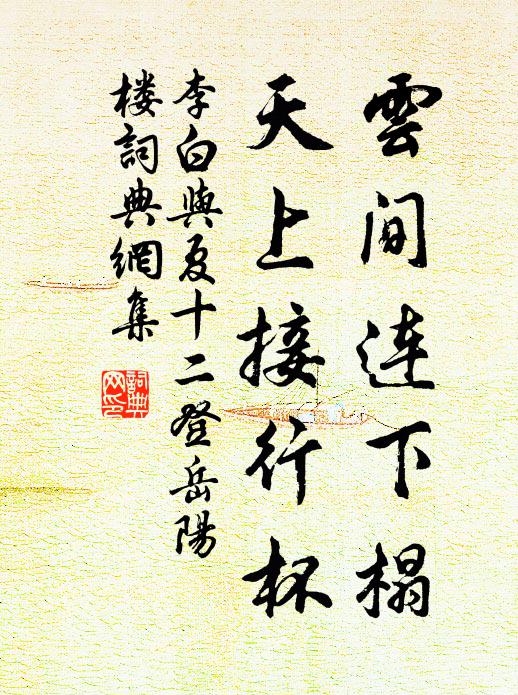 雲間连下榻
天上接行杯
李白與夏十二登岳陽
楼詞典網集
詞典
网印